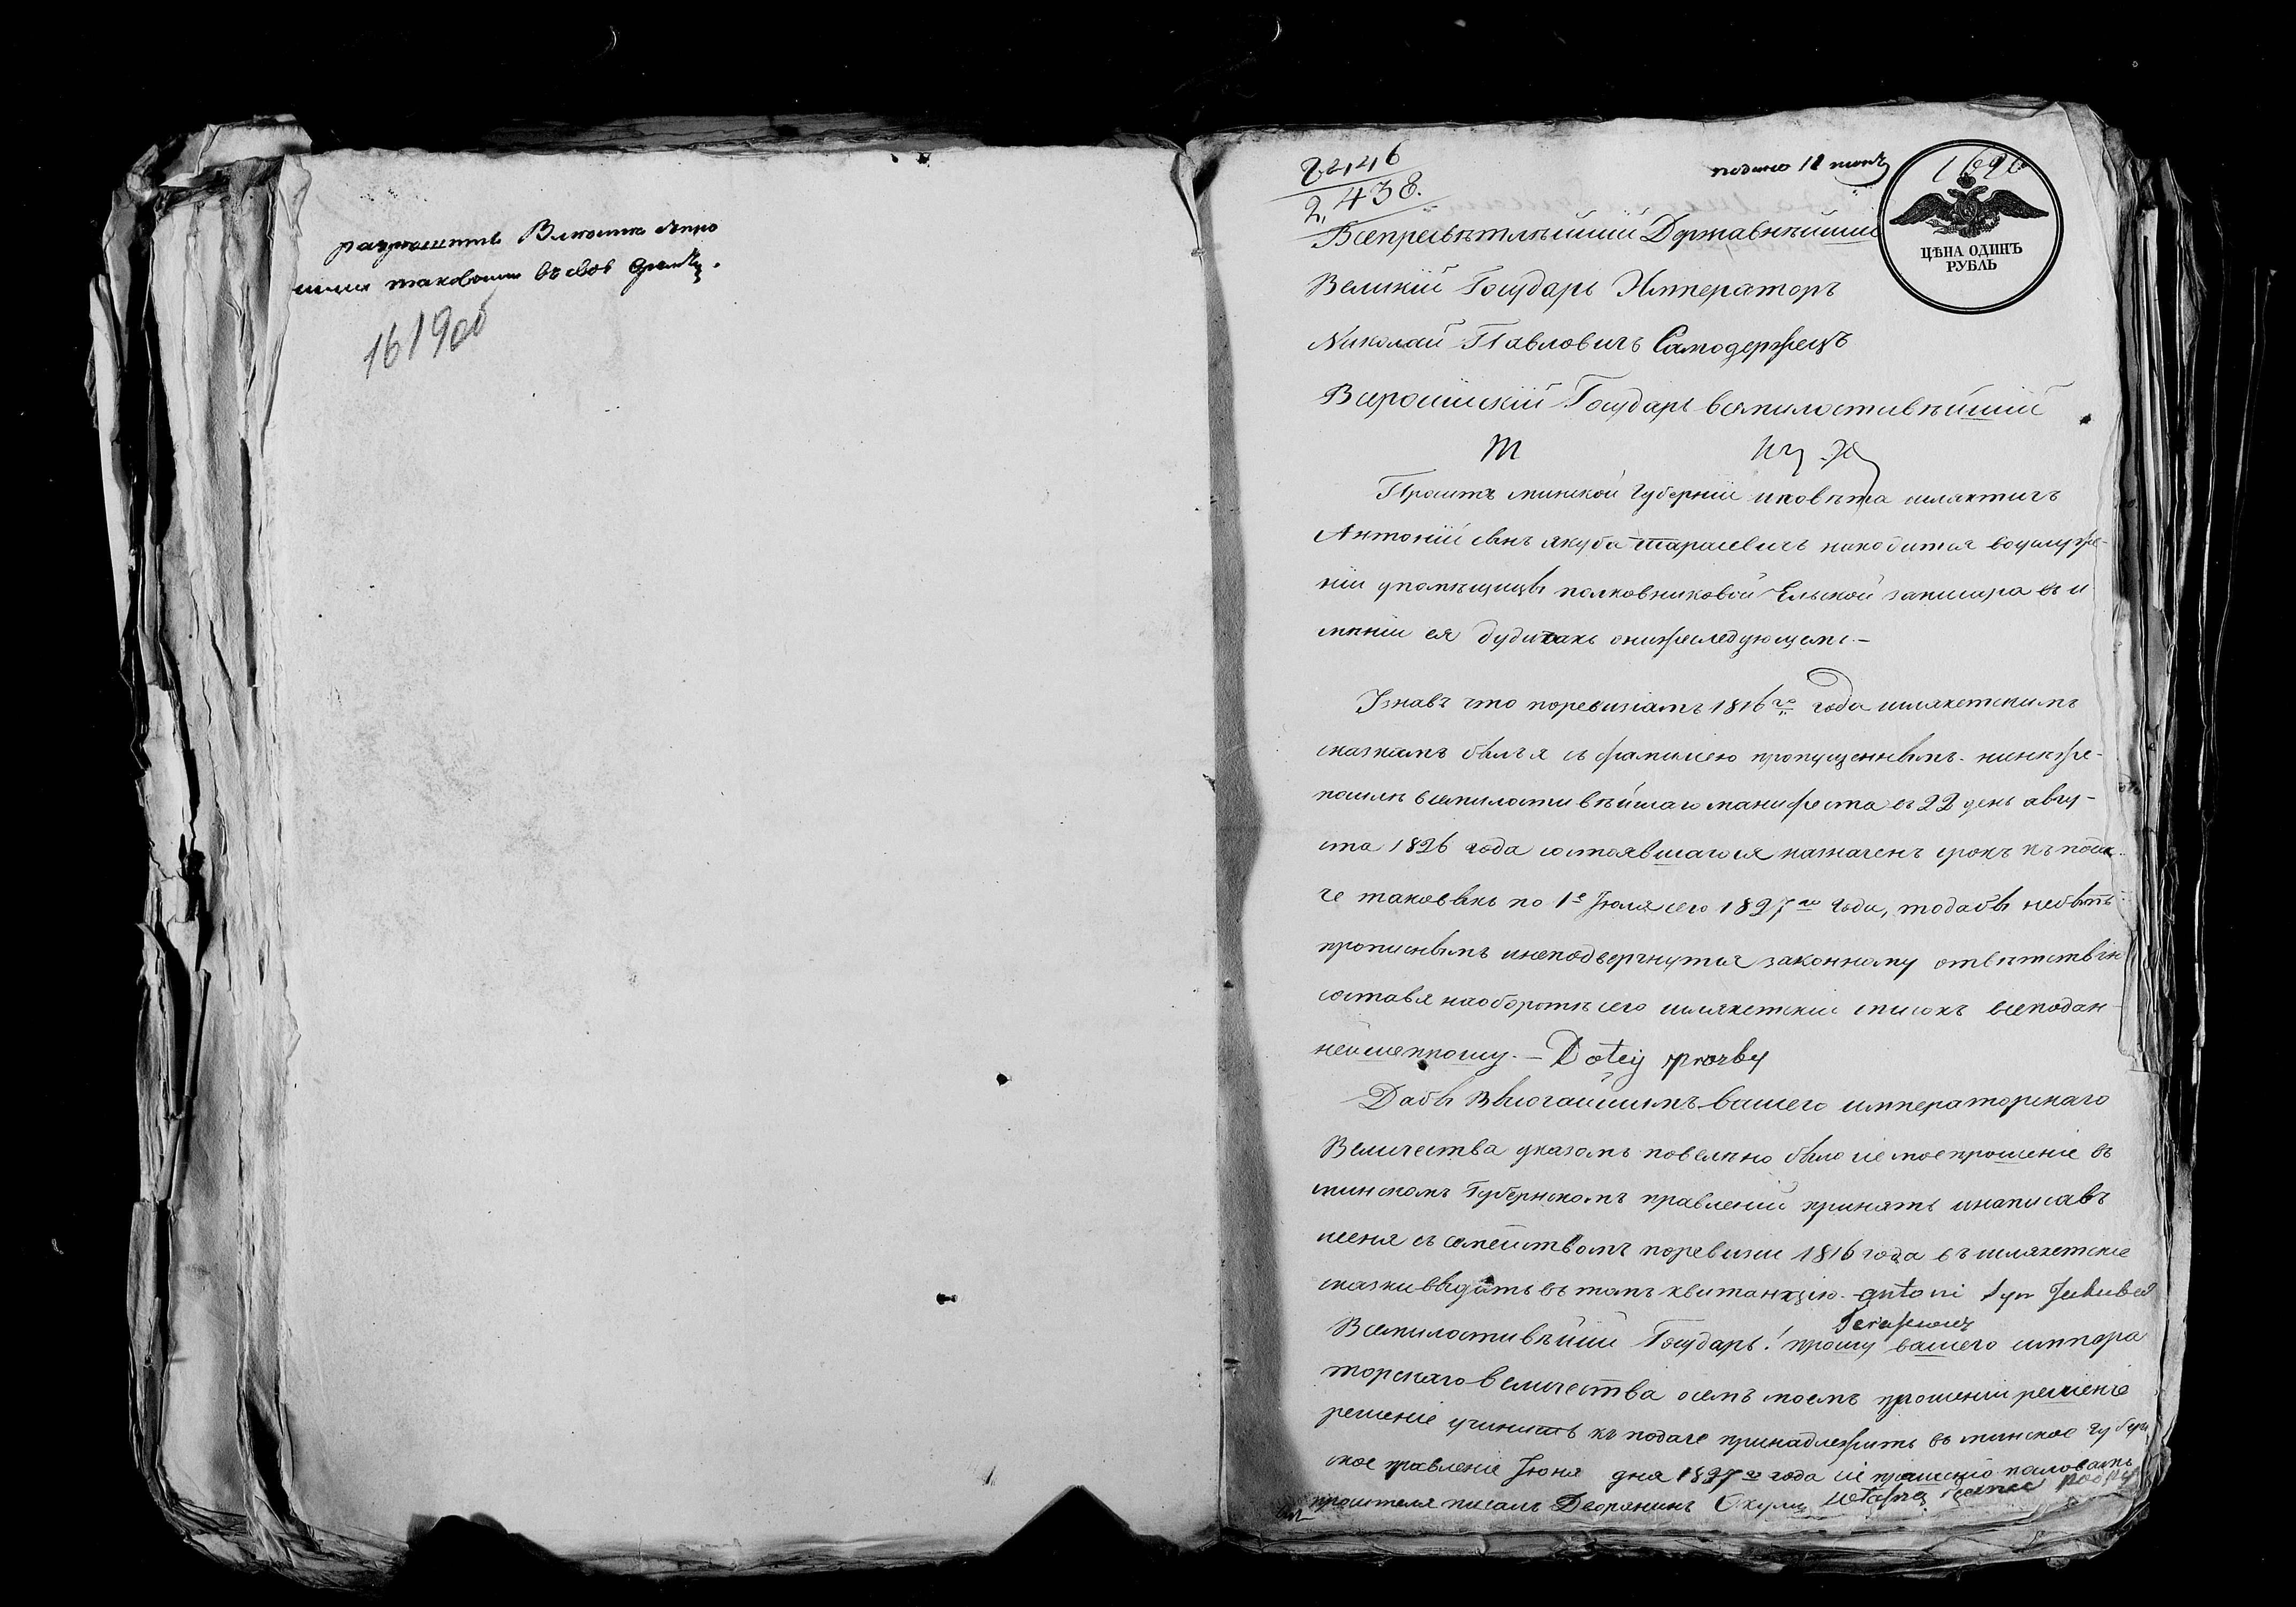 разрѣшить
таковыми въ свое время.
1619об
22,46
2,438.
подано 18 іюня
1620
ЦѢНА ОДИНЪ
РУБЛЬ
Всепресвѣтлѣйшій Державнѣйшій
Великій Государь Императоръ
Николай Павловичъ Самодержецъ
Всеросійскій Государь всемилостивѣйшій
Проситъ минской губерніи иповѣта шляхтичъ
Антоній сынъ якуба тарасевичъ находится воуслуже-
ніи упомѣщицы полковниковой Ельской въ и
мѣніи ея дудичахъ онижеследующемъ.—
Узнавъ что поревизіямъ 1816го года шляхетскимъ
сказкамъ былъ я съ фамиліею пропущеннымъ. нинѣже-
посилѣ всемилостивѣйшаго манифеста въ 22 день авгу-
ста 1826 года состоявшагося назначенъ срокъ къ пода-
че таковыхъ по 1е Іюля сего 1827го года, тодабы небыть
прописнымъ инеподвергнутся законному отвѣтствію
составя наоборотѣ сего шляхетскій списокъ всеподан-
нейше прошу.— Do tey prozby
Дабы Высочайшимъ вашего императорскаго
Величества указомъ повелѣно было сіе мое прошеніе въ
минскомъ Губернскомъ правленіи принять инаписавъ
меня съ семействомъ поревизіи 1816 года въ шляхетскіе
сказки выдать въ томъ квитанцію.— Antoni syn Jakuba
Tarasewicz
Всемилостивѣйшій Государь! прошу вашего импера
торскаго величества осемъ моемъ прошеніи решеніе
решеніе учинить къ подаче принадлежитъ въ минское губерн
ское правленіе Іюня дня 1827го года сіе прошеніе пословамъ
просителя писалъ Дворянинъ